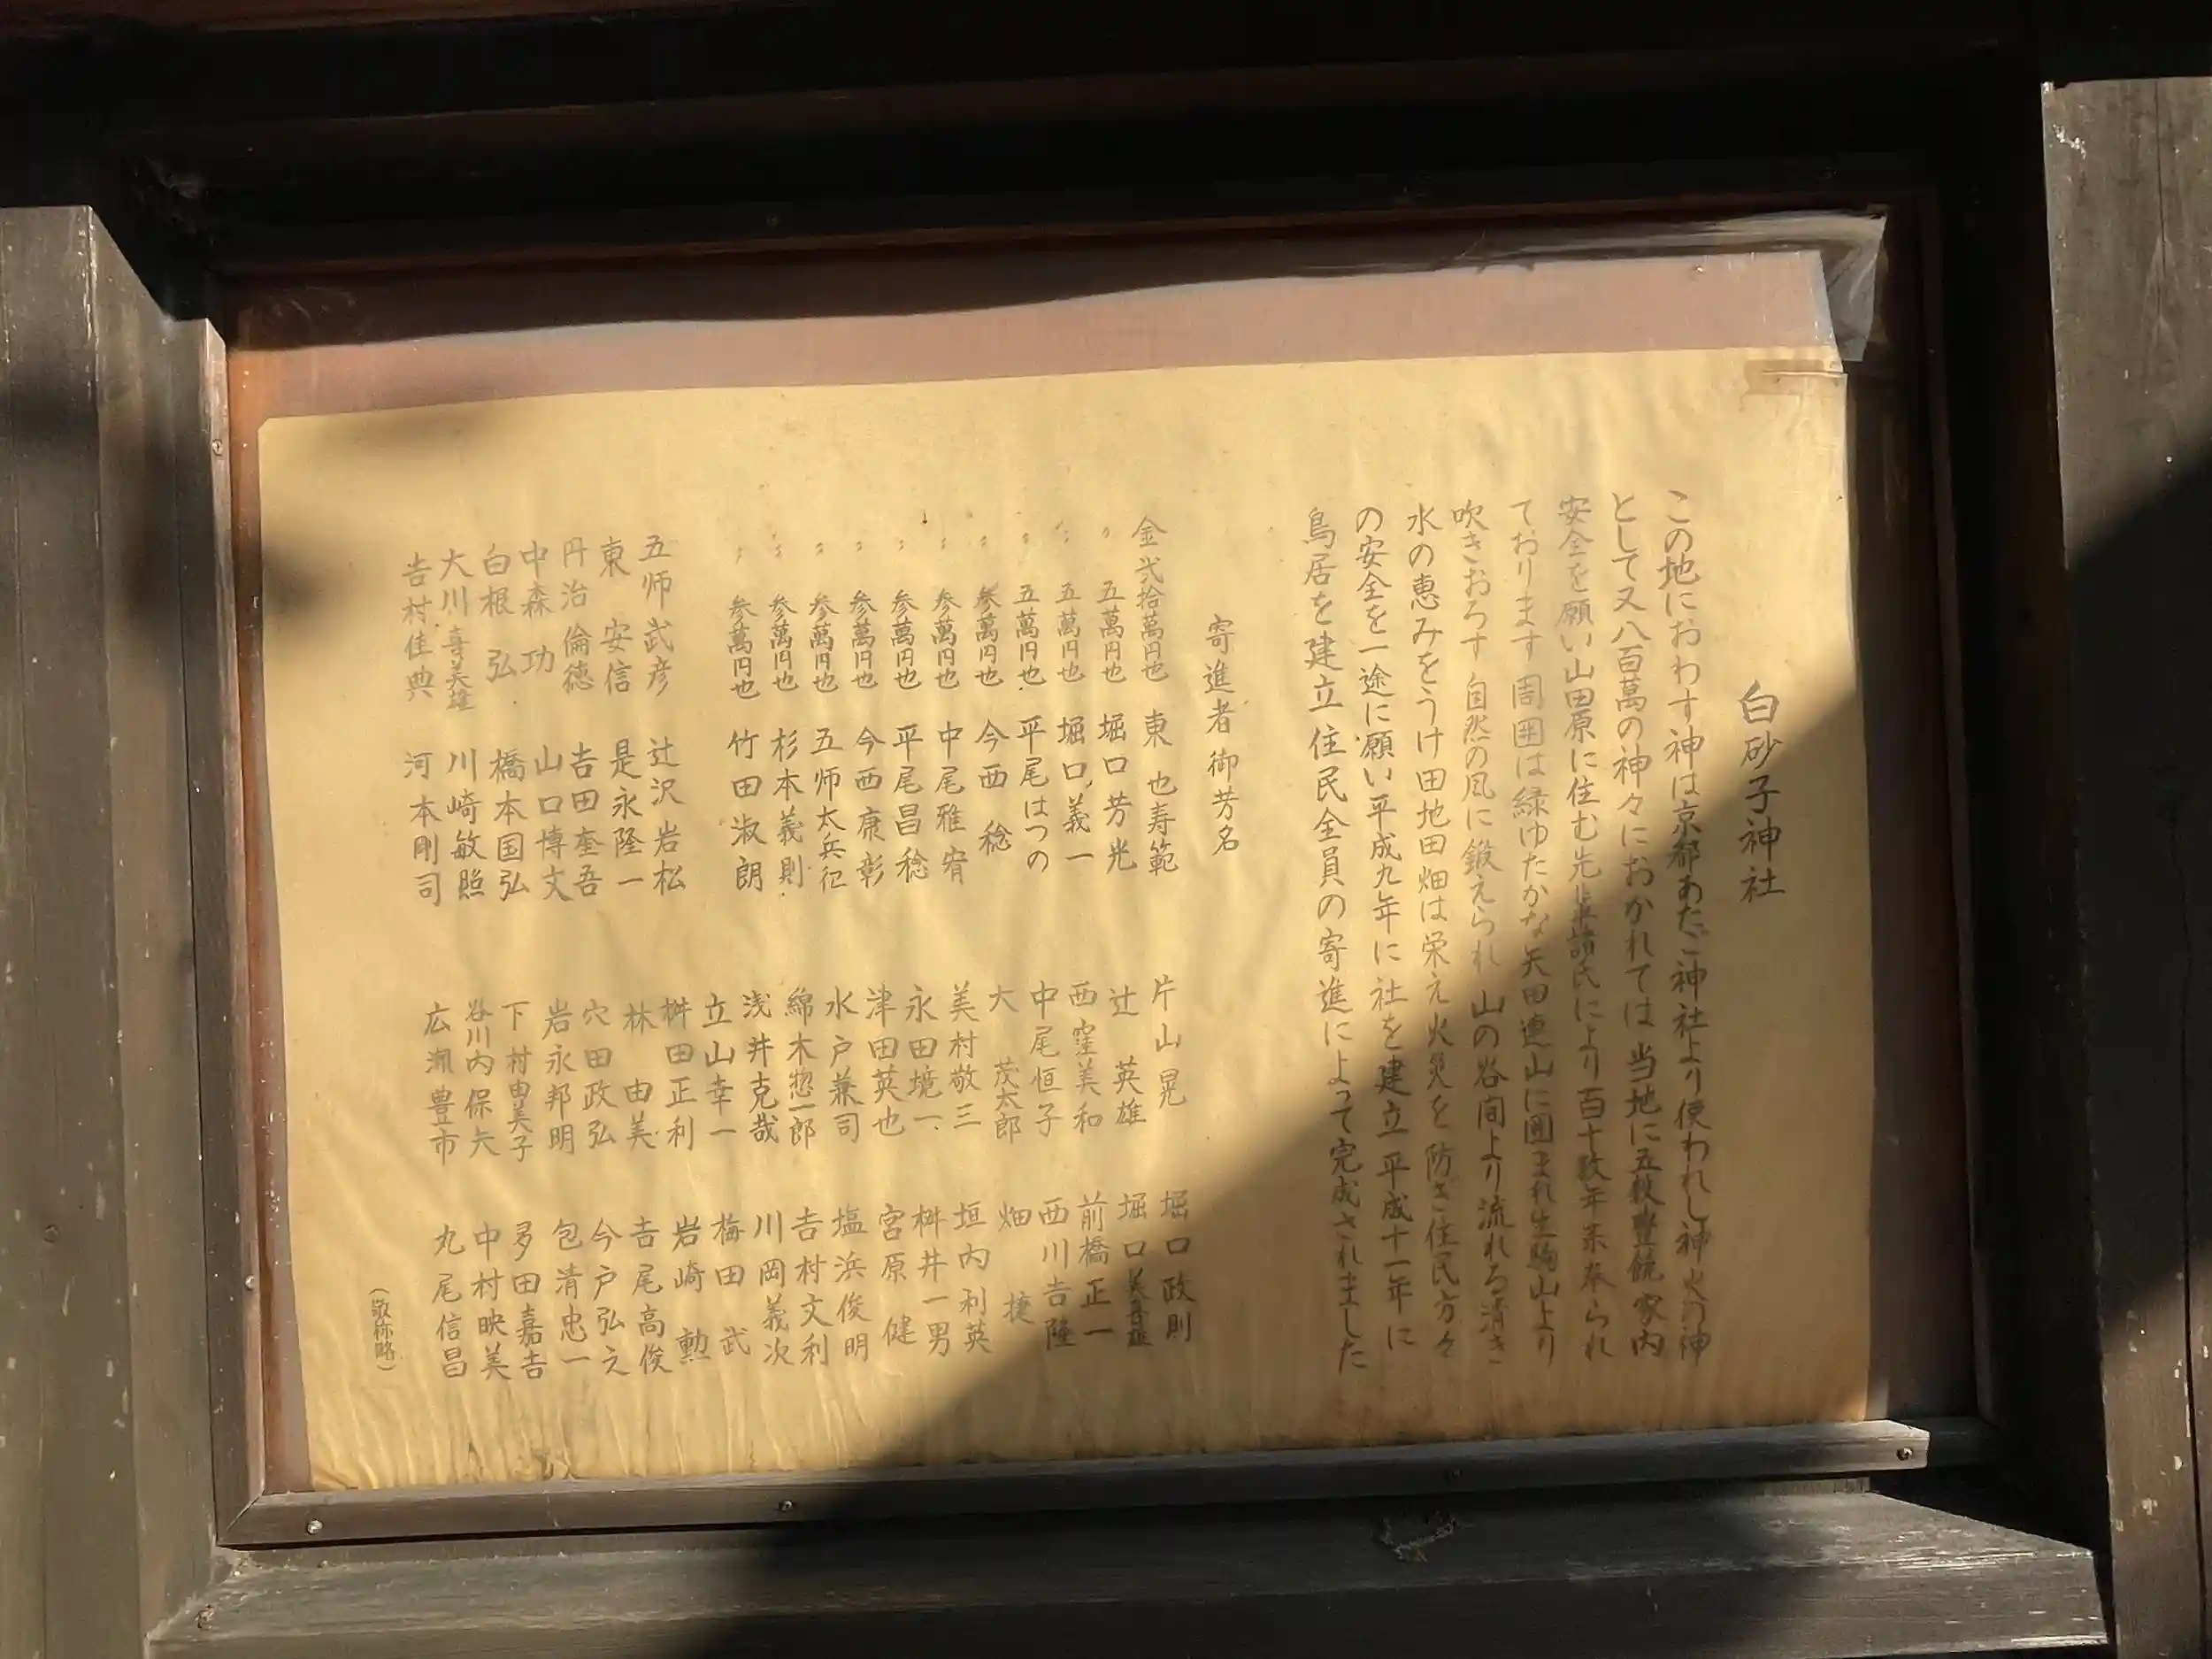 白砂子神社
この地におわす神は京都あたご神社より使われし神火の神
として又八百萬の神々におかれては当地に五穀豊饒家内
安全を願い山田原に住む先住諸氏により百十数年来奉られ
ております周囲は緑ゆたかな矢田連山に囲まれ生駒山より
吹きおろす自然の風に鍛えられ山の谷間より流れる清き
水の恵みをうけ田地田畑は栄え火災を防ぎ住民方々
の安全を一途に願い平成九年に社を建立平成十一年に
鳥居を建立住民全員の寄進によって完成されました
寄進者御芳名
金弐拾萬円也 東也寿範
〃 五萬円也 堀口芳光
〃 五萬円也 堀口義一
〃 五萬円也 平尾はつの
〃 参萬円也 今西稔
〃 参萬円也 中尾雅宥
〃 参萬円也 平尾昌稔
〃 参萬円也 今西康彰
〃 参萬円也 五师太兵征
〃 参萬円也 杉本義則
〃 参萬円也 竹田淑朗
五师武彦 辻沢岩松
東安信 是永隆一
円治倫徳 吉田奎吾
中森功 山口博文
白根弘 橋本国弘
大川喜美雄 川崎敏照
吉村佳典 河本剛司
片山晃 堀口政則
辻英雄 堀口美喜雄
西窪美和 前橋正一
中尾恒子 西川吉隆
大茂太郎 畑捷
美村敬三 垣内利英
永田境一 桝井一男
津田英也 宮原健
水戸兼司 塩浜俊明
綿木惣一郎 吉村文利
浅井克哉 川岡義次
立山幸一 梅田武
桝田正利 岩崎勲
林由美 吉尾高俊
穴田政弘 今戸弘之
岩永邦明 包清忠一
下村由美子 多田嘉吉
谷川内保矢 中村映美
広瀬豊市 丸尾信昌
（敬称略）